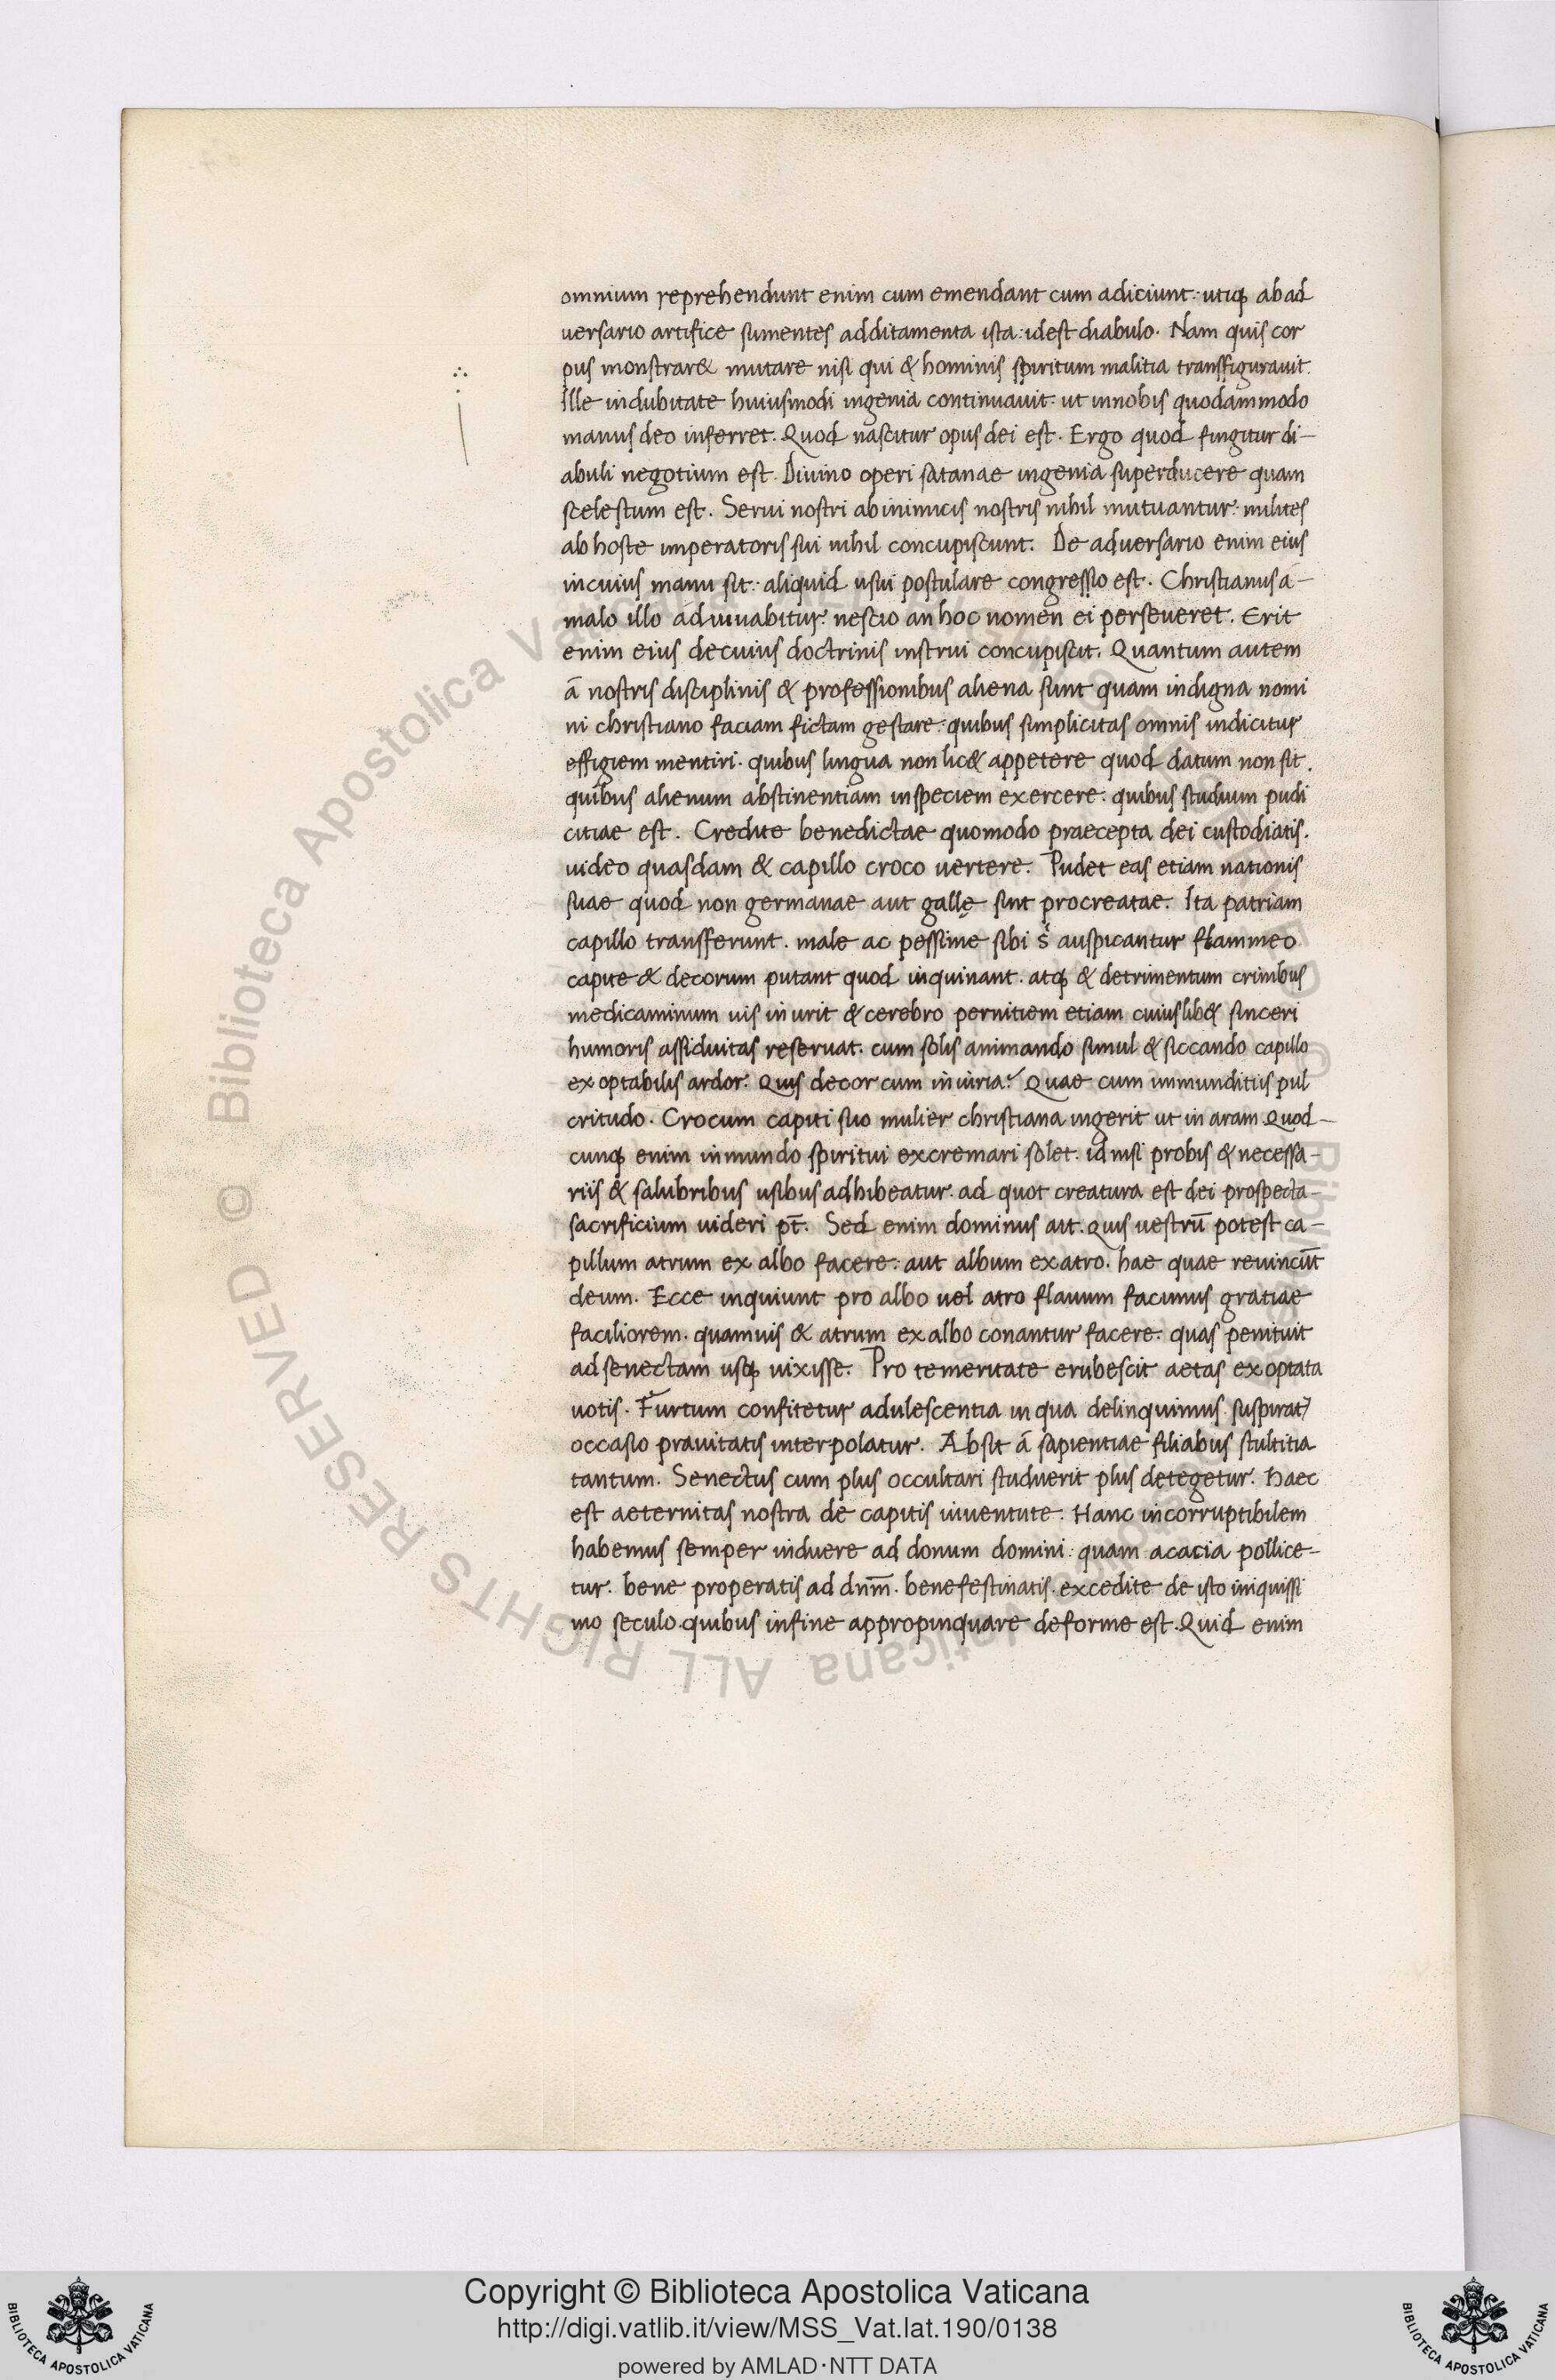 omnium reprehendunt enim cum emendant cum adiciunt: utiqꝫ ab ad
uersario artifice sumentes additamenta ista: idest diabulo. Nam quis cor
pus monstrar& mutare nisi qui & hominis spiritum malitia transfigurauit.
Ille indubitate huiusmodi ingenia continuauit. ut innobis quodammodo
manus deo inferret. Quod nascitur opus dei est. Ergo quod fingitur di-
abuli negotium est. Diuino operi satanae ingenia superducere quam
scelestum est. Serui nostri abinimicis nostris nihil mutuantur: milites
ab hoste imperatoris sui nihil concupiscunt. De aduersario enim eius
incuius manu sit: aliquid usui postulare congressio est. Christianus a-
malo illo adiuuabitur: nescio an hoc nomen ei perseueret. Erit
enim eius decuius doctrinis instrui concupiscit. Quantum autem
a nostris disciplinis & professionibus aliena sunt quam indigna nomi
ni christiano faciam fictam gestare: quibus simplicitas omnis indicitur
effigiem mentiri. quibus lingua non lic& appetere quod datum non sit.
quibus alienum abstinentiam inspeciem exercere. quibus studium pudi
citiae est. Credite benedictae quomodo praecepta dei custodiatis.
uideo quasdam & capillo croco uertere. Pudet eas etiam nationis
suae quod non germanae aut gallę sint procreatae. Ita patriam
capillo transferunt. male ac pessime sibi auspicantur flammeo
capite & decorum putant quod inquinant. atqꝫ & detrimentum crinibus
medicaminum uis inurit & cerebro pernitiem etiam cuiuslib& sinceri
humoris assiduitas reseruat. cum solis animando simul & siccando capillo
exoptabilis ardor. Quis decor cum iniuria? Quae cum inmunditiis pul
critudo. Crocum capiti suo mulier christiana ingerit ut in aram. Quod-
cunqꝫ enim inmundo spiritui excremari solet. id nisi probis & necessa-
riis & salubribus usibus adhibeatur. ad quot creatura est dei prospecta-
sacrificium uideri pt̄. Sed enim dominus ait. Quis uestrū potest ca-
pillum atrum ex albo facere: aut album ex atro. hae quae reuincūt
deum. Ecce inquiunt pro albo uel atro flauum facimus gratiae
faciliorem. quamuis & atrum ex albo conantur facere. quas penituit
ad senectam usqꝫ uixisse. Pro temeritate erubescit aetas exoptata
uotis. Furtum confitetur adulescentia in qua delinquimus suspirat᷑
occasio prauitatis interpolatur. Absit á sapientiae filiabus stultitia
tantum. Senectus cum plus occultari studuerit plus detegetur. Haec
est aeternitas nostra de capitis iuuentute. Hanc incorruptibilem
habemus semper induere ad donum domini: quam acacia pollice-
tur. bene properatis ad dnm̄. benefestinatis. excedite de isto iniquissi
mo seculo. quibus infine appropinquare deforme est. Quid enim
© Biblioteca Apostolica Vaticana ALL RIGHTS RESERVED
Copyright © Biblioteca Apostolica Vaticana
http://digi.vatlib.it/view/MSS_Vat.lat.190/0138
powered by AMLAD·NTT DATA
BIBLIOTECA APOSTOLICA VATICANA
BIBLIOTECA APOSTOLICA VATICANA